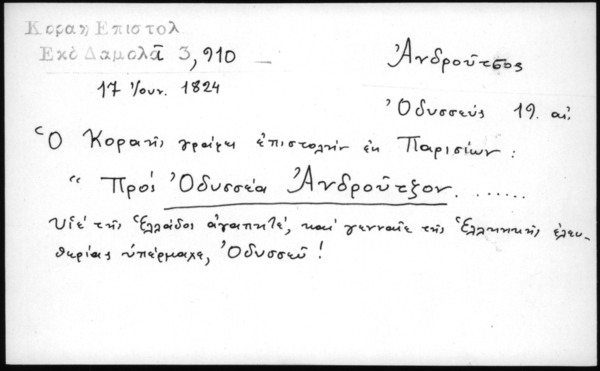 Κοραη Επιστολ
Εκδ Δαμαλᾶ 3,910
Ἀνδροῦτσος
17 Ἰουν. 1824
Ὀδυσσεύς 19. αἰ.
Ὁ Κοραῆς γράφει ἐπιστολὴν ἐκ Παρισίων :
" Πρὸς Ὀδυσσέα Ἀνδροῦτζον. ......
Υἱὲ τῆς Ἑλλάδος ἀγαπητέ, καὶ γενναῖε τῆς Ἑλληνικῆς ἐλευ-
θερίας ὑπέρμαχε, Ὀδυσσεῦ !